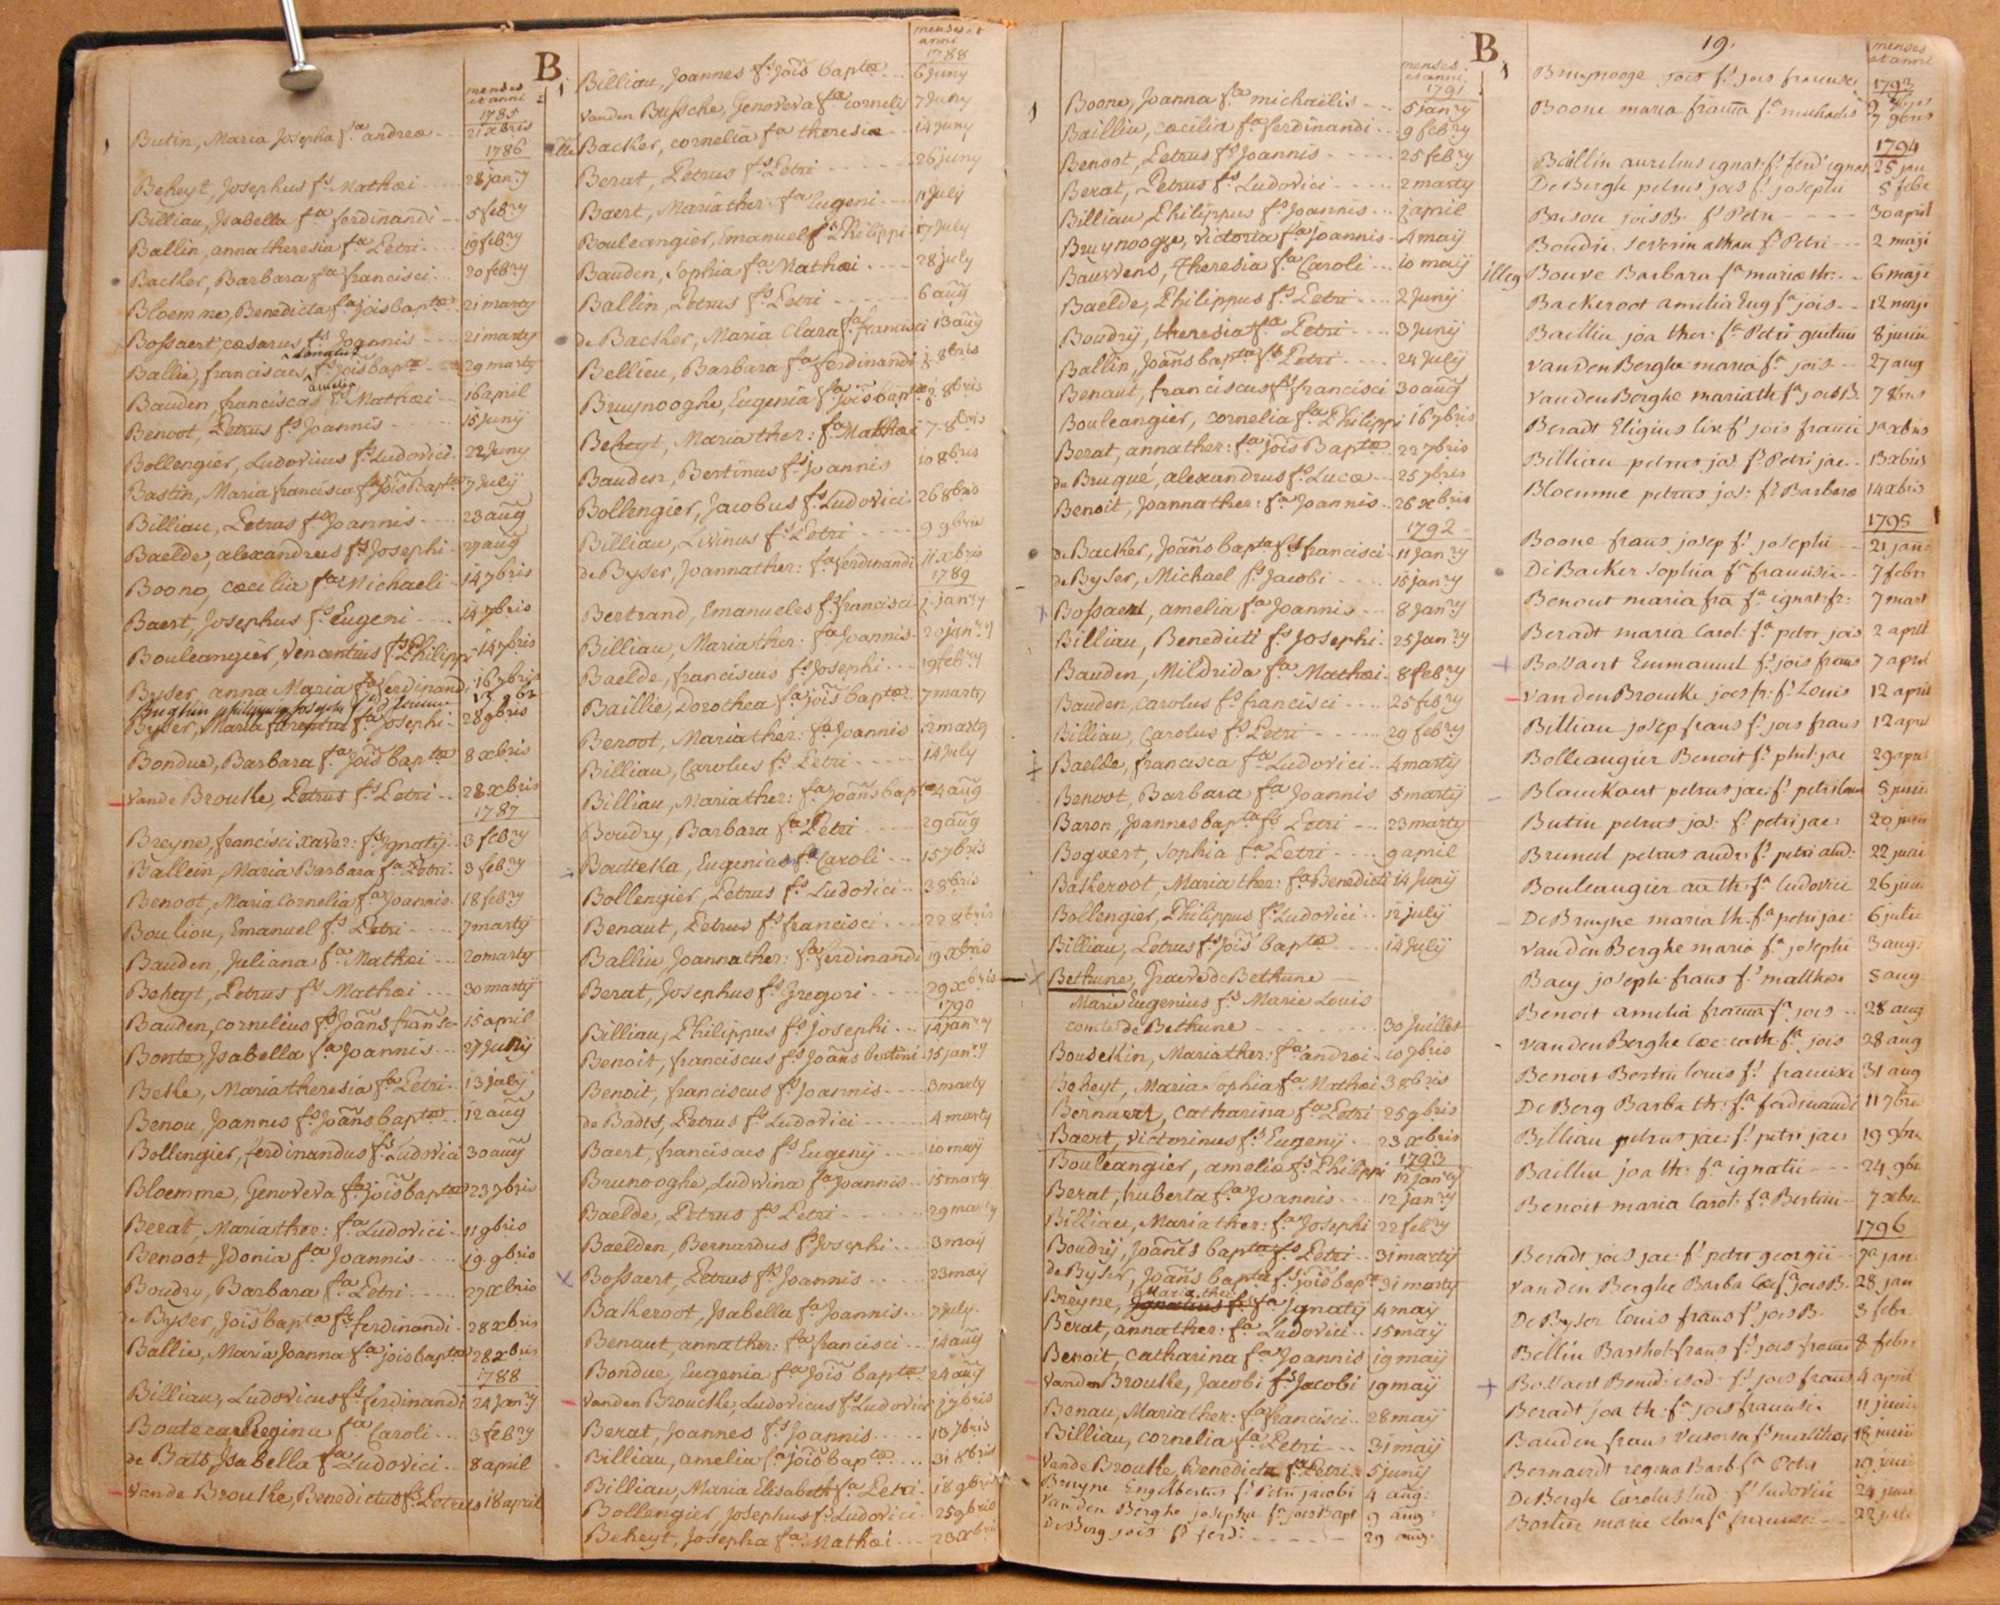 B
menses
et anni
1785
Butin, Maria Josepha fa andreæ 21 xbris
1786
Beheyt, Josephus fs Mathæi 28 janry
Billiau, Isabella fa ferdinandi 5 febry
Ballin, anna theresia fa Petri 19 febry
Backer, Barbara fa francisci 20 febry
Bloemme, Benedicta fa jois baptæ 21 marty
Bossaert, cæsarus fs Joannis 21 marty
Ballie, franciscus fs jois baptæ 29 marty
amelia
Bauden francisca fa Mathæi 16 april
Benoot, Petrus fs Joannis 15 Juny
Bollengier, Ludovicus fs Ludovici 22 Juny
Bastin, Maria francisca fa Jois Baptæ 7 July
Billiau, Petrus fs Joannis 23 aug
Baelde, alexandrus fs Josephi 27 aug
Boone, cæcilia fa Michaeli 14 7bris
Baert, Josephus fs Eugeni 14 7bris
Bouleangier, Venantius fs Philippi 14 7bris
Byser, anna Maria fa ferdinandi 16 7bris
17 9br
Byser, Maria fa Josephi 28 9bris
Bondue, Barbara fa Jois baptæ 8 xbris
Vande Brouke, Petrus fs Petri 28 xbris
1787
Breyne, francisci xaver: fs Ignatij 3 febry
Ballein, Maria Barbara fa Petri 3 febry
Benoot, Maria Cornelia fa Joannis 18 febry
Bouliou, Emanuel fs Petri 7 marty
Bauden, Juliana fa Mathæi 20 marty
Beheyt, Petrus fs Mathæi 30 marty
Bauden, cornelius fs Joans franse 15 april
Bonte, Isabella fa Joannis 27 Junij
Beke, Maria theresia fa Petri 13 july
Benou, Joannes fs Joans baptæ 12 aug
Bollengier, ferdinandus fs Ludovici 30 aug
Bloemme, Genoveva fa jois baptæ 23 7bris
Berat, Maria ther: fa Ludovici 11 9bris
Benoot, Idonia fa Joannis 19 9bris
Boudry, Barbara fa Petri 27 xbris
de Byser, Jois bapta fs ferdinandi 28 xbris
Ballie, Maria Joanna fa jois baptæ 28 xbris
1788
Billiau, Ludovicus fs ferdinandi 24 Janry
Boutecar Regina fa Caroli 3 febry
de Bats, Isabella fa Ludovici 8 april
Vande Brouke, Benedictus fs Petrus 18 april
menses et
anni
1788
Billiau, Joannes fs Jois baptæ 6 Juny
Vanden Bussche, Genoveva fa cornelij 7 Juny
Backer, cornelia fa theresiæ 14 Juny
Berat, Petrus fs Petri 26 juny
Baert, Maria ther: fa Eugeni 11 July
Bouleangier, Emanuel fs Philippi 17 July
Bauden, Sophia fa Mathæi 28 july
Ballin, Petrus fs Petri 6 aug
de Backer, Maria Clara fa francisci 13 aug
Bellieu, Barbara fa ferdinandi 1 8bris
Bruynooghe, Eugenia fa jois baptæ 2 8bris
Beheyt, Maria ther: fa Mathæi 7 8bris
Bauden, Bertinus fs Joannis 10 8bris
Bollengier, Jacobus fs Ludovici 26 8bris
Billiau, Livinus fs Petri 9 9bris
de Byser, Joanna ther: fa ferdinandi 11 xbris
1789
Bertrand, Emanueles fs francisci 1 janry
Billiau, Maria ther: fa Joannis 20 janry
Baelde, franciscus fs Josephi 19 febry
Baillie, Dorothea fa jois baptæ 7 marty
Benoot, Maria ther: fa Joannis 12 marty
Billiau, Carolus fs Petri 14 July
Billiau, Maria ther: fa Joans baptæ 4 aug
Boudry, Barbara fa Petri 29 aug
Bouteka, Eugenia fa Caroli 15 7bris
Bollengier, Petrus fs Ludovici 3 8bris
Benaut, Petrus fs francisci 22 8bris
Balliu, Joanna ther: fa ferdinandi 19 xbris
Berat, Josephus fs Gregori 29 xbris
1790
Billiau, Philippus fs josephi 14 janry
Benoit, franciscus fs Joans bertini 15 janry
Benoit, franciscus fs Joannis 3 marty
de Badts, Petrus fs Ludovici 4 marty
Baert, franciscus fs Eugenij 10 maij
Brunooghe, Ludwina fa Joannis 15 marty
Baelde, Petrus fs Petri 29 marty
Baelden, Bernardus fs Josephi 3 maij
Bossaert, Petrus fs Joannis 23 maij
Bakeroot, Isabella fa Joannis 7 July
Benaut, anna ther: fa francisci 14 aug
Bondue, Eugenia fa Jois baptæ 24 aug
Vanden Broucke, Ludovicus fs Ludovici 1 7bris
Berat, Joannes fs Joannis 10 7bris
Billiau, amelia fa jois baptæ 31 8bris
Billiau, Maria Elisabeth fa Petri 18 9bris
Bollengier, Josephus fs Ludovici 25 9bris
Beheyt, Josepha fa Mathæi 23 xbris
B
menses
et anni
1791
Boone, Joanna fa michaëlis 5 janry
Bailliu, cæcilia fa ferdinandi 9 febry
Benoot, Petrus fs Joannis 25 febry
Berat, Petrus fs Ludovici 2 marty
Billiau Philippus fs Joannis 1 april
Bruynooge, Victoria fa Joannis 4 maij
Bauwens, theresia fa Caroli 10 maij
Baelde, Philippus fs Petri 2 Junij
Boudry, theresia fa Petri 3 Junij
Ballin, Joans bapta fs Petri 24 July
Benaut, franciscus fs francisci 30 aug
Bouleangier, cornelia fa Philippi 16 7bris
Berat, anna ther: fa jois Baptæ 22 7bris
du Bruqué, alexandrus fs Lucæ 25 7bris
Benoit, Joanna ther: fa Joannis 26 xbris
1792
de Backer, Joans bapta fs francisci 11 Janry
de Byser, Michael fs Jacobi 15 janry
Bossaert, amelia fa Joannis 8 Janry
Billiau, Benedicti fs Josephi 25 Janry
Bauden, Mildrida fa Mathæi 8 febry
Bauden, Carolus fs francisci 25 febry
Billiau, Carolus fs Petri 29 febry
Baelde, francisca fa Ludovici 4 martij
Benoot, Barbara fa Joannis 5 martij
Baron, Joannes bapta fs Petri 23 marty
Boquert, Sophia fa Petri 9 april
Bakeroot, Maria ther: fa Benedicti 14 Junij
Bollengier, Philippus fs Ludovici 12 july
Billiau, Petrus fs jois baptæ 14 July
Bethune, Graeve de Bethune
Marie Eugenius fs Marie Louis
comte de Bethune 30 Juillet
Boudekin, Maria ther: fa andræi 10 7bris
Beheyt, Maria Sophia fa Mathæi 3 8bris
Bernaert, catharina fa Petri 25 9bris
Baert, Victorinus fs Eugenij 23 xbris
1793
Bouleangier, amelia fa Philippi 12 janry
Berat, huberta fa Joannis 12 janry
Billiau, Maria ther: fa Josephi 22 febry
Boudrij, Joans bapta fs Petri 31 martij
de Byser, Joans bapta fs jois bapt 31 marty
Maria ther:
Breyne, Ignatius fs fa Ignatij 4 maij
Berat, anna ther: fa Ludovici 15 maij
Benoit, Catharina fa Joannis 19 maij
Vanden Brouke, Jacobi fs Jacobi 19 maij
Benau, Maria ther: fa francisci 28 maij
Billiau, cornelia fa Petri 31 maij
Vande Brouke, Benedicta fa Petri 5 junij
Bruyne Engelbertus fs Petri jacobi 4 aug:
Vanden Berghe josepha fa jois Bapt 9 aug:
De Berg jois fs ferdi: 29 aug:
19.
menses
et anni
1793
Bruynooge jois fs jois francisci
Boone maria franca fa michaelis 7 9bris
1794
Baillin aurelius ignat: fs ferd ignat 25 jan
De Bergh petrus jois fs josephi 5 febr
Baison jois B: fs Petri 30 april
Boudri Severin fs Petri 2 maji
illeg Bouve Barbara fa mariæ th: 6 maji
Backeroot amelia Eug fa jois 12 maji
Bailliu joa ther: fa Petri 8 junii
vanden Berghe maria fa jois 27 aug
vanden Berghe maria th fa jois B. 7 8bris
Beradt Eligius liv: fs jois franci 1a xbris
Billiau petrus jos: fs Petri jac: 13 xbris
Bloemme petrus jos: fs Barbaræ 14 xbris
1795
Boone frans josep fs josephi 21 jan:
De Backer sophia fa francisci 7 febr:
Benout maria fra fa ignat: fr: 7 mart
Beradt maria Carol: fa petri jois 2 april
Bossaert Emmanuel fs jois frans 7 april
vanden Broucke joes fr: fs Louis 12 april
Billiau josep frans fs jois frans 12 april
Bolleangier Benoit fs phil: jac 29 april
Blanckaert petrus jac: fs petri 8 junii
Butin petrus jos: fs petri jac: 20 junii
Bruneel petrus andr: fs petri and: 22 junii
Bouleaugier an th: fa ludovici 26 junii
De Bruyne maria th: fa petri jac: 6 julii
vanden Berghe maria fa josephi 3 aug:
Baey joseph frans fs matthæi 8 aug
Benoit amelia franca fa jois 28 aug
vanden Berghe cæc: cath: fa jois 28 aug
Benoit Bertin louis fs francisci 31 aug
De Berg Barba th: fa ferdinandi 11 7bris
Billiau petrus jac: fs petri jac: 19 9bris
Bailliu joa th: fa ignatii 24 9bris
Benoit maria Carol: fa Bertini 7 xbris
1796
Beradt jois jac: fs petri georgii 7a jan:
vanden Berghe Barba cæc fa Jois B. 28 jan
De Byser louis frans fs jois B. 3 febr:
Bellin Barthol: frans fs jois frans 8 febr:
Bossaert Bened: isod: fs jois frans 4 april
Beradt joa th: fa jois francisci 11 junii
Bauden frans Victor fs matthæi 18 junii
Bernaerdt regina Barb fa Petri 19 junii
De Bergh Carolus lud: fs ludovici 24 junii
Bastin marie clara fa francisci 22 julii